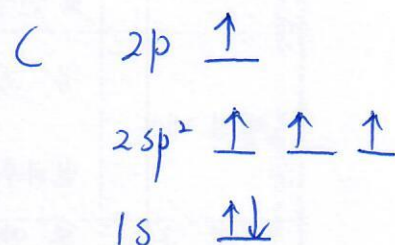 C 2p ↑
2sp² ↑ ↑ ↑
1s ↑↓